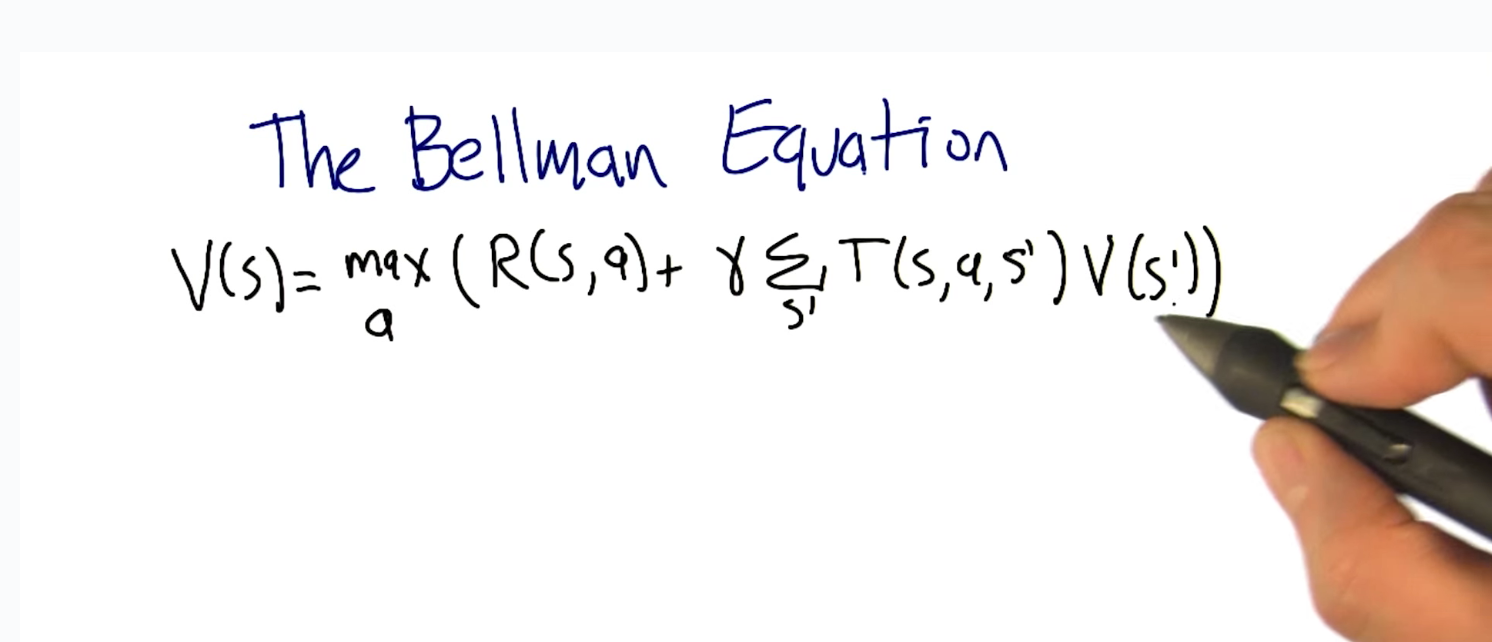 The Bellman Equation
V(s)= max (R(s,a)+ γ Σ T(s,a,s')V(s'))
a s'